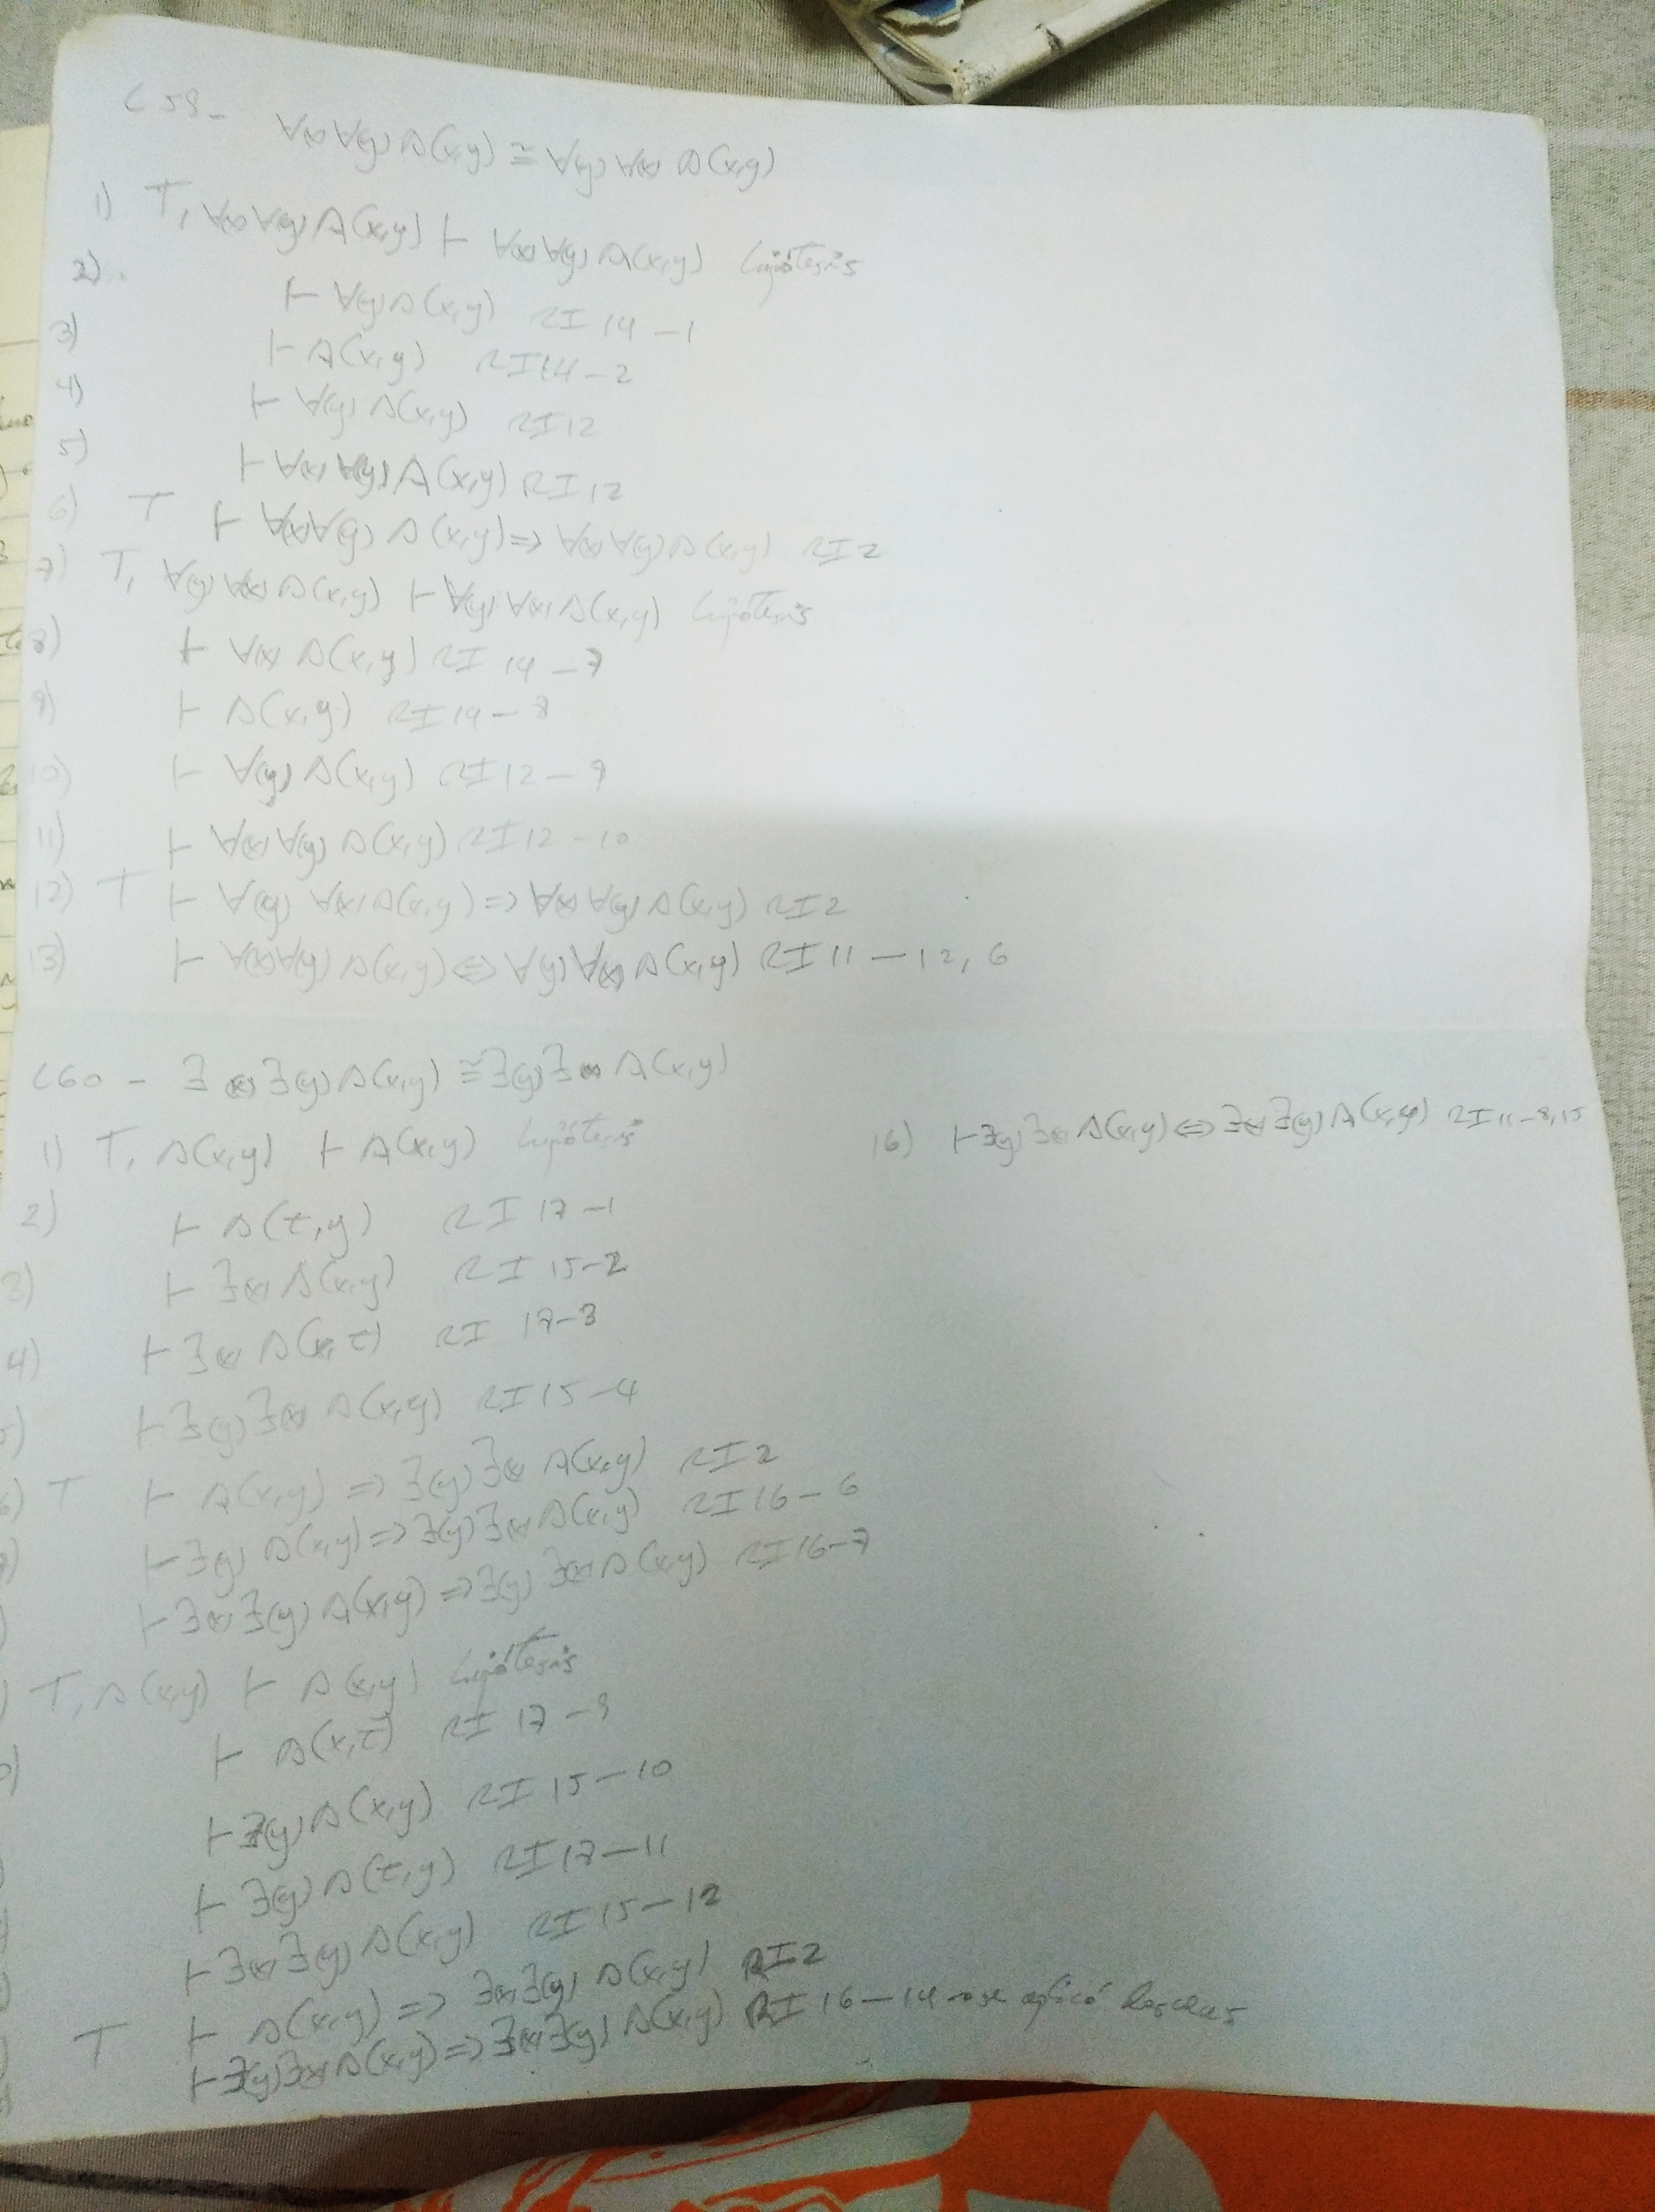 C59- ∀(x)∀(y)A(x,y) ≅ ∀(y)∀(x) A(x,y)
1) T, ∀(x)∀(y)A(x,y) ⊢ ∀(x)∀(y)A(x,y) hipótesis
2) ⊢ ∀(y)A(x,y) RI 14 - 1
3) ⊢ A(x,y) RI14 - 2
4) ⊢ ∀(y) A(x,y) RI12
5) ⊢ ∀(x)∀(y)A(x,y) RI12
6) T ⊢ ∀(x)∀(y) A(x,y) => ∀(x)∀(y)A(x,y) RI2
7) T, ∀(y)∀(x)A(x,y) ⊢ ∀(y)∀(x)A(x,y) hipótesis
8) ⊢ ∀(x) A(x,y) RI 14 - 7
9) ⊢ A(x,y) RI14 - 8
10) ⊢ ∀(y) A(x,y) RI12 - 9
11) ⊢ ∀(x)∀(y) A(x,y) RI12 - 10
12) T ⊢ ∀(y)∀(x)A(x,y) => ∀(x)∀(y)A(x,y) RI2
13) ⊢ ∀(x)∀(y)A(x,y) <=> ∀(y)∀(x)A(x,y) RI11 - 12, 6
C60 - ∃(x)∃(y)A(x,y) ≅ ∃(y)∃(x) A(x,y)
1) T, A(x,y) ⊢ A(x,y) hipótesis
2) ⊢ A(t,y) RI 17 - 1
3) ⊢ ∃(x)A(x,y) RI 15-2
4) ⊢ ∃(x) A(x,t) RI 17-3
5) ⊢ ∃(y)∃(x) A(x,y) RI15 - 4
6) T ⊢ A(x,y) => ∃(y)∃(x) A(x,y) RI2
7) ⊢ ∃(y) A(x,y) => ∃(y)∃(x)A(x,y) RI16 - 6
) ⊢ ∃(x)∃(y)A(x,y) => ∃(y)∃(x)A(x,y) RI16-7
) T, A(x,y) ⊢ A(x,y) hipótesis
0) ⊢ A(x,t) RI 17 - 9
⊢ ∃(y)A(x,y) RI 15 - 10
⊢ ∃(y)A(t,y) RI17 - 11
⊢ ∃(x)∃(y)A(x,y) RI15 - 12
T ⊢ A(x,y) => ∃(x)∃(y)A(x,y) RI2
⊢ ∃(y)∃(x)A(x,y) => ∃(x)∃(y)A(x,y) RI 16 - 14 se aplicó dos veces
16) ⊢ ∃(y)∃(x)A(x,y) <=> ∃(x)∃(y)A(x,y) RI11-8,15